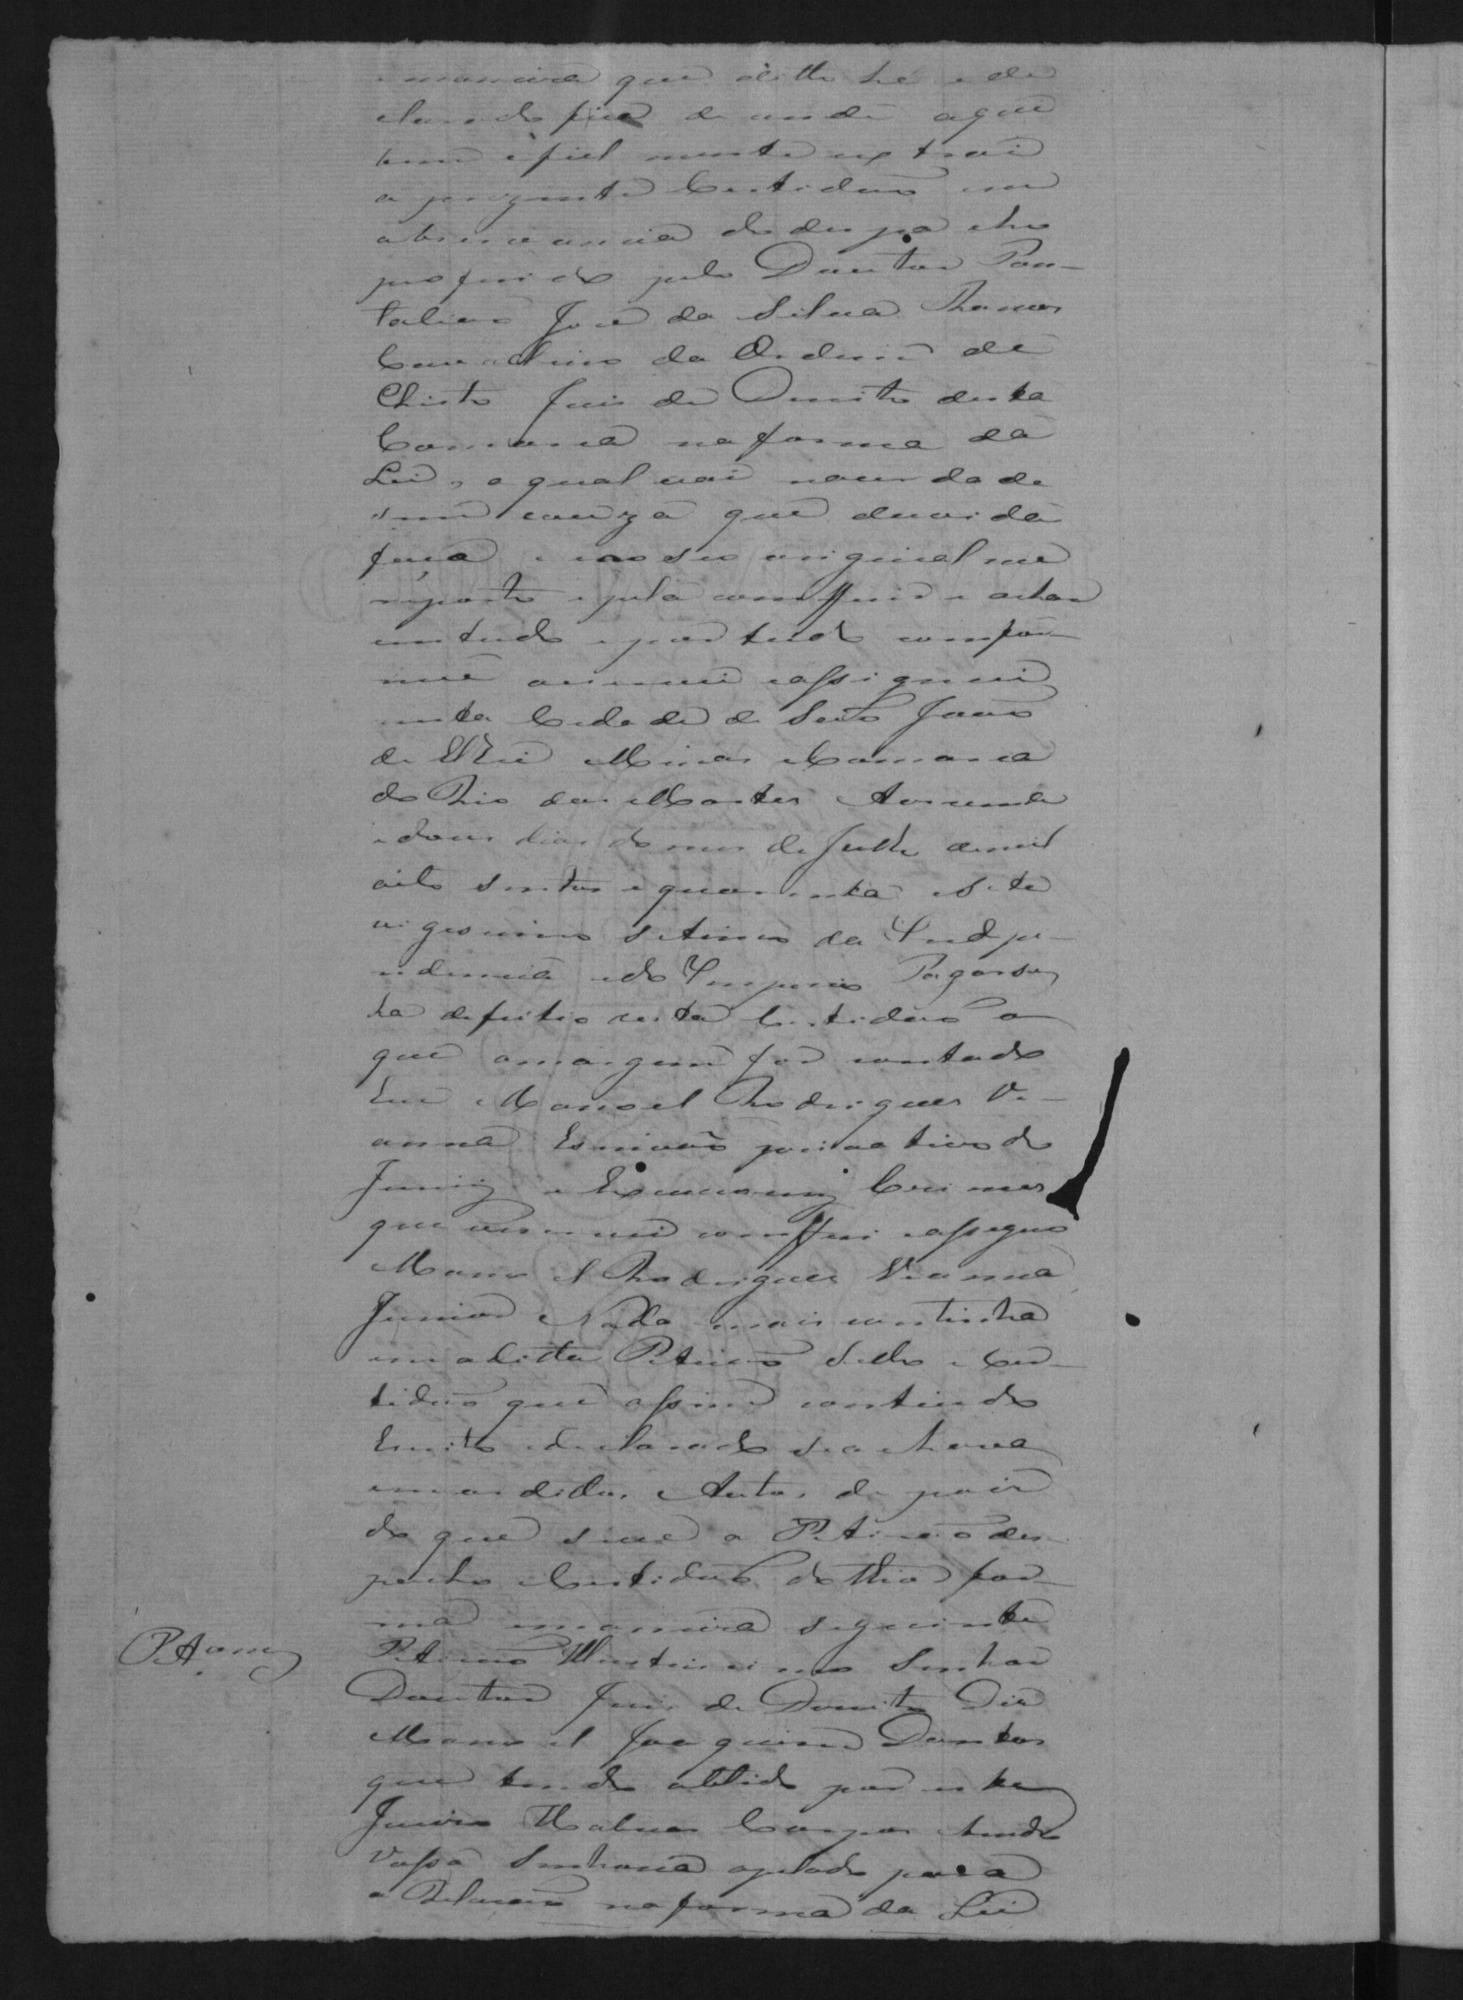 emaneira que ditto hé e de
clarado fica de onde aqui
bem efiel mente extrai
a prezente Certidaõ em
observancia do despacho
proferido pelo Doutor Pan-
taliaõ José da Silva Ramos
Cavalheiro da Ordem de
Christo Juis de Direito desta
Comarca na forma da
Lei, a qual vai na verdade
sem couza que duvida
faça e ao seo original me
reporto epela confferir e achar
em tudo epor tudo comfor-
me escrevi eassignei
nesta Cidade de Saõ Joaõ
de ElRei Minas Comarca
do Rio das Mortes aos vinte
e dous dias do mes de Julho demil
oito sentos e quarenta e Sete
vigesimo setimo da Indepe-
ndencia edo Imperio Pagarse
ha defeitio desta Certidaõ o
que amargem for contado
Eu Manoel Rodrigues Vi-
anna Escrivaõ privativo do
Jury e Execuçoens Crimes
que escrevi confferi eassigno
Manoel Rodrigues Vianna
Junior Nada mais continha
em aditta Petiçaõ Sello e Cer-
tidaõ que assim contiudo
Escrito edeclarado se achava
em os dittos Autos, de pois
do que seve a Petiçaõ des-
pacho Certidaõ do thior for-
ma emaneira seguinte
Petiçam
Petiçaõ Illustrissimo Senhor
Doutor Juis de Direito Dis
Manoel Joaquim Dantas
que tendo obtido por este
Juizo Habeas Corpos tendo
Vossa Senhoria apelado para
a Relaçaõ na forma da Lei